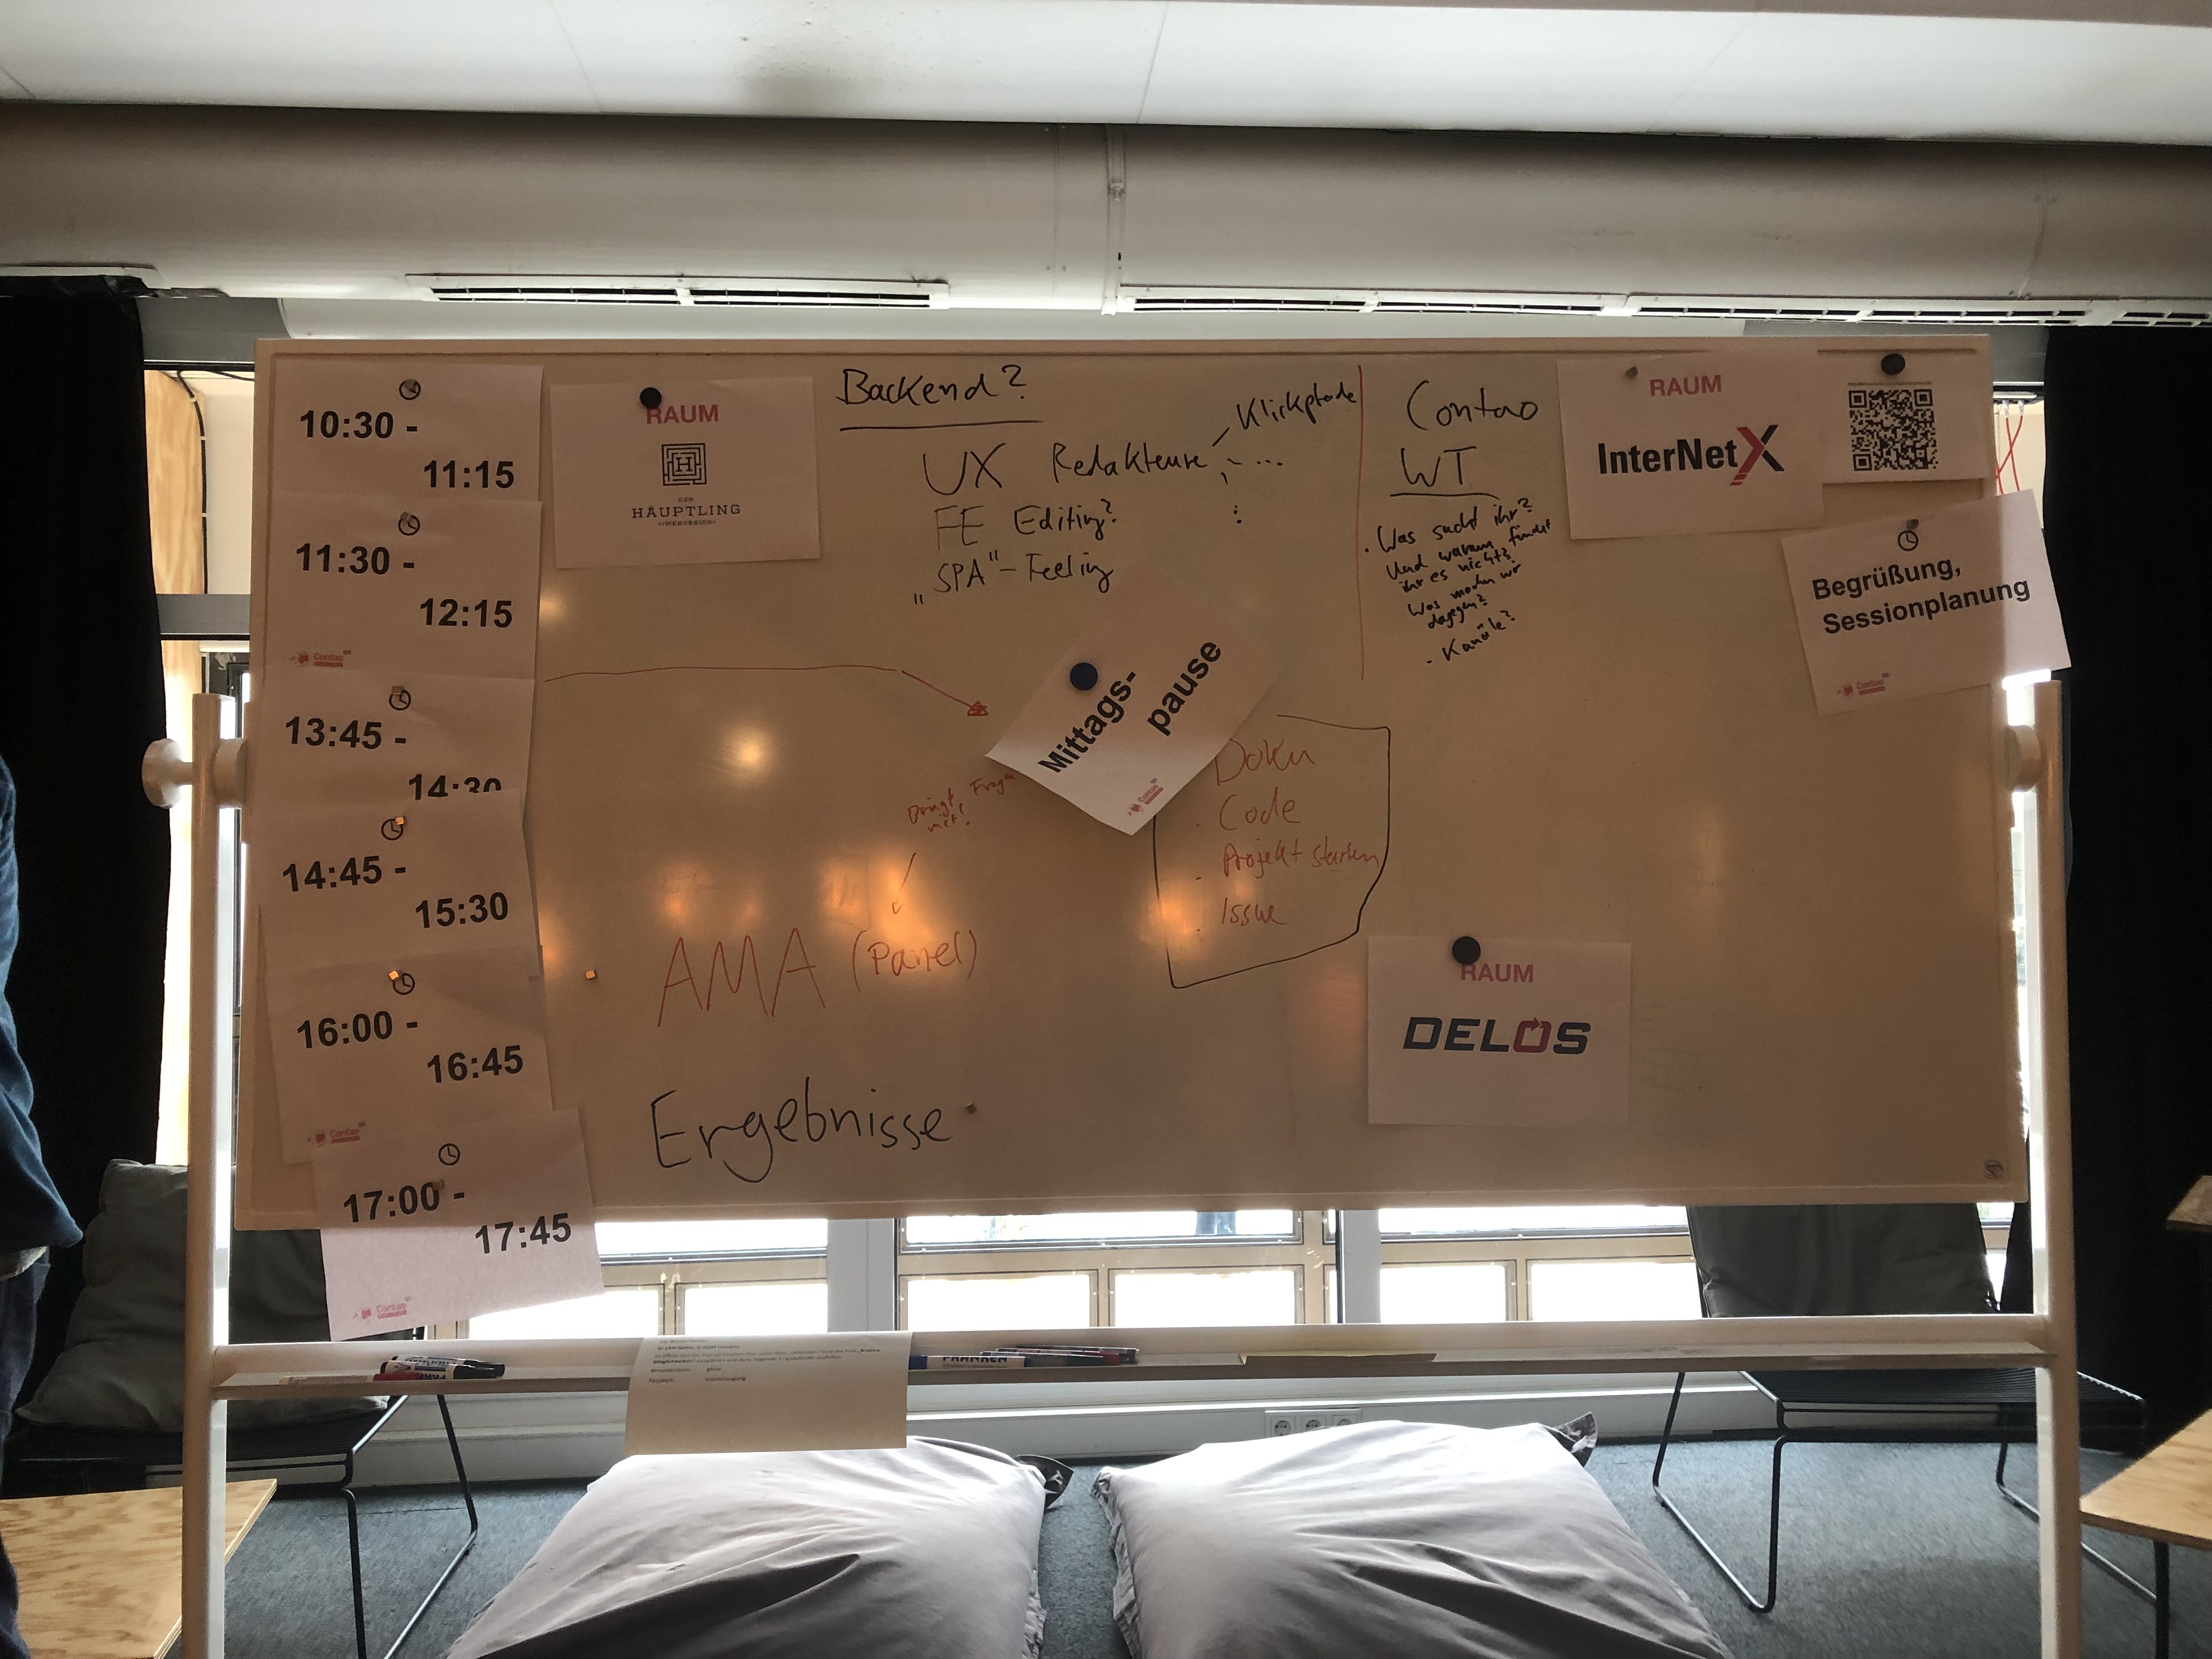 10:30 -
11:15
11:30 -
12:15
Contao
13:45 -
14:30
14:45 -
15:30
16:00 -
16:45
Contao
17:00 -
17:45
Contao
RAUM
H
DER
HÄUPTLING
Backend?
UX Redakteure
Klickpfade
...
FE Editing?
„SPA"-Feeling
Contao
WT
· Was sucht ihr?
Und warum findet
ihr es nicht?
Was machen wir
dagegen?
· Kanäle?
RAUM
InterNetX
Begrüßung,
Sessionplanung
Contao
Mittags-
pause
Contao
Bringt Fragen
mit!
AMA (Panel)
Doku
· Code
· Projekt starten
· Issue
RAUM
DELOS
Ergebnisse